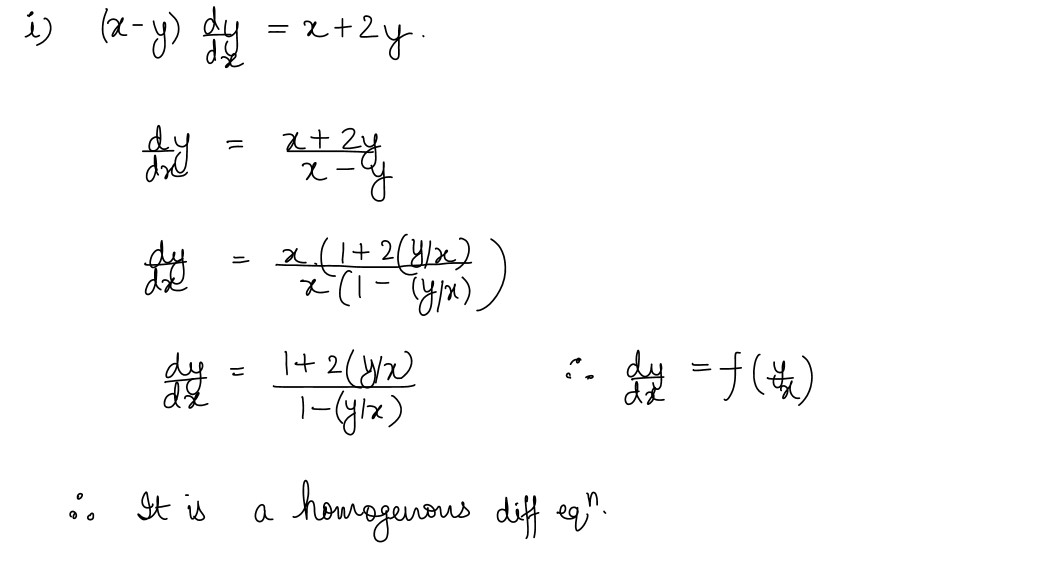 i) (x-y) dy/dx = x+2y.
dy/dx = x+2y / x-y
dy/dx = x.(1+2(y/x) / x(1-(y/x))
dy/dx = 1+2(y/x) / 1-(y/x) ∴ dy/dx = f(y/x)
∴ It is a homogenous diff eqⁿ.